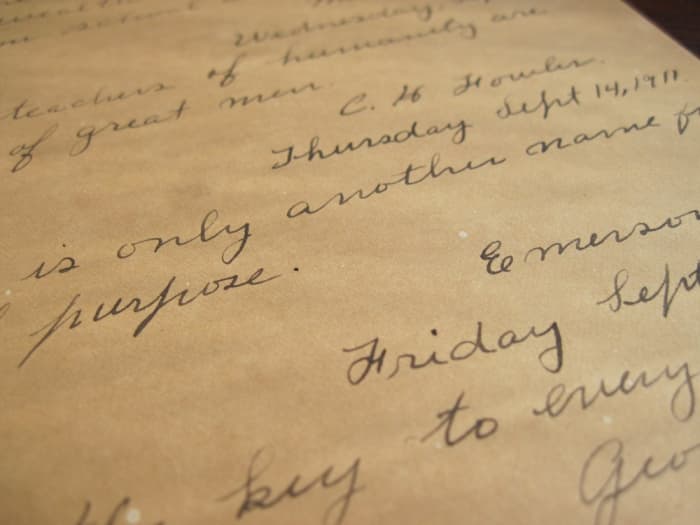 Wednesday,
teachers of humanity are
of great men.
C. H Fowler.
Thursday Sept 14, 1911.
is only another name
purpose.
Emerson
Friday Sept
key to every
Geo